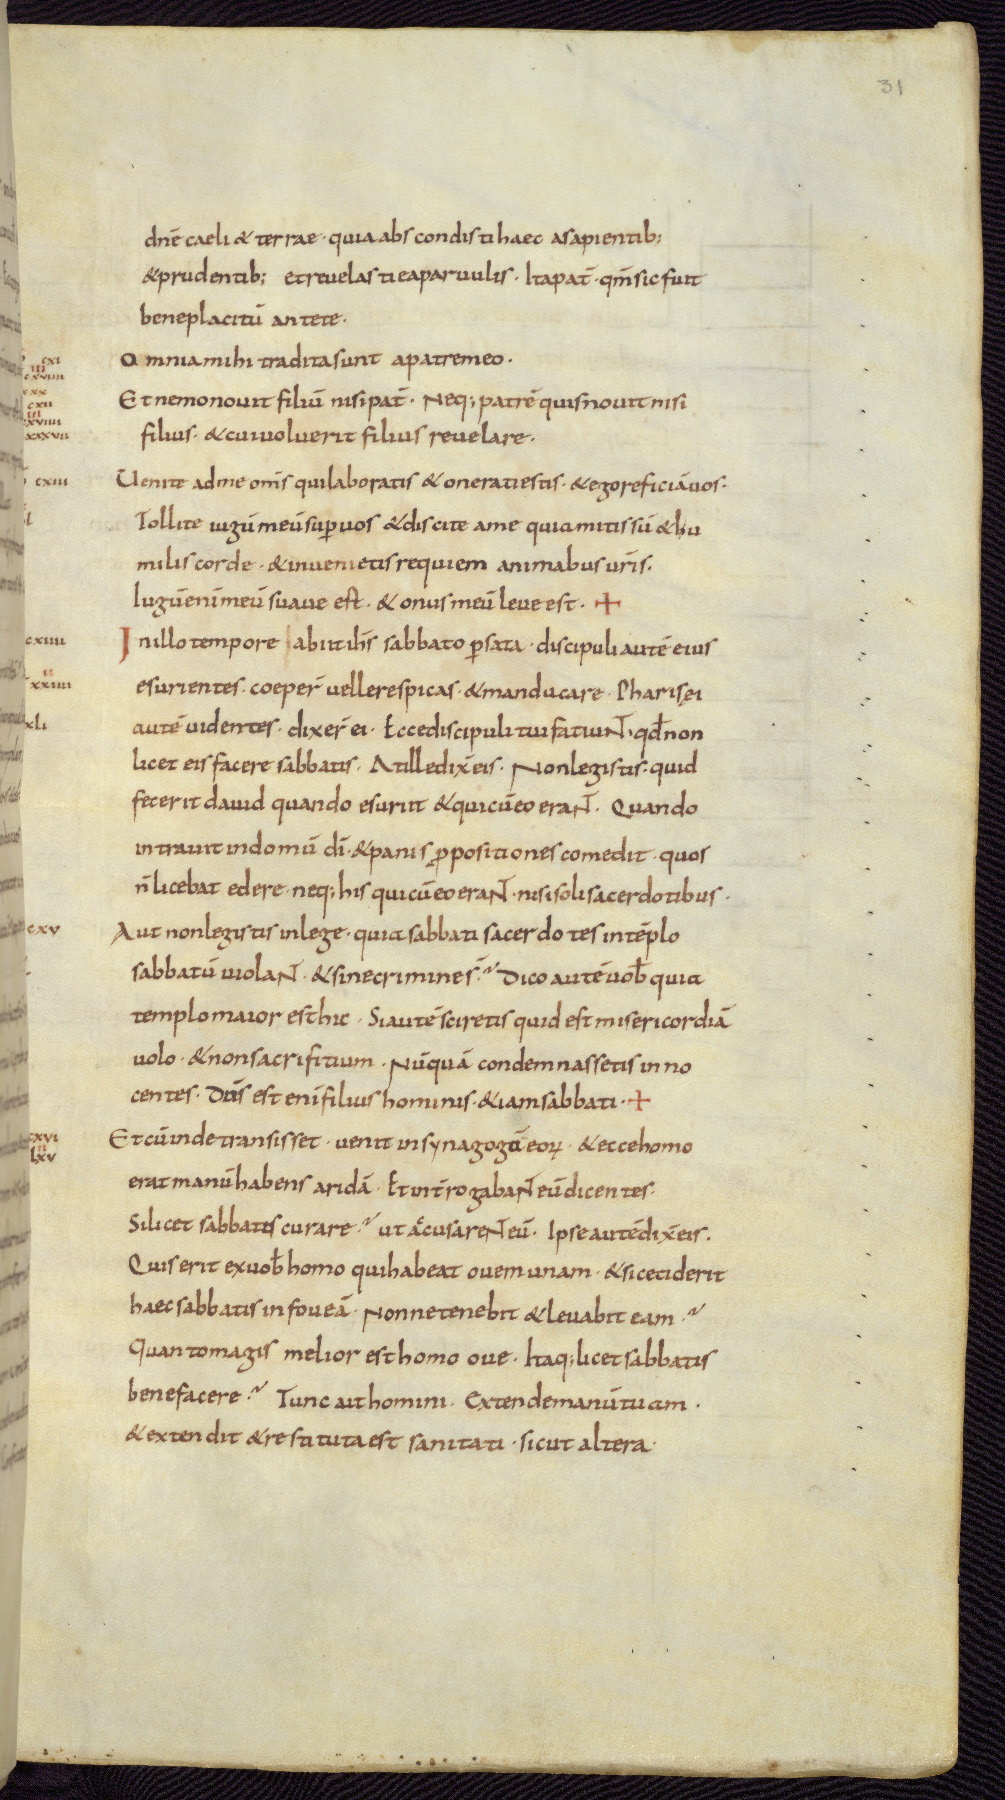 31
dnē caeli & terrae · quia abscondisti haec a sapientib;
& prudentib; et revelasti ea parvulis · Ita pat̄ · qm̄ sic fuit
beneplacitū ante te ·
Omnia mihi tradita sunt a patre meo ·
cxi
iii
cxviiii
Et nemo novit filiū nisi pat̄ · Neq; patrē quis novit nisi
cxii
iii
filius · & cui voluerit filius revelare ·
Venite ad me om̄s qui laboratis & onerati estis · & ego reficiā vos ·
cxiii
Tollite iugū meū sup̄ vos & discite a me quia mitis sū & hu
milis corde · & invenietis requiem animabus vr̄is ·
Iugū enī meū suave est · & onus meū leve est · +
In illo tempore abiit ih̄s sabbato p̄ sata · discipuli autē eius
cxiiii
ii
xxiiii
esurientes · coeper̄ vellere spicas · & manducare · Pharisęi
xli
autē videntes · dixer̄ ei · Ecce discipuli tui fatiuN̄ · qd̄ non
licet eis facere sabbatis · At ille dix̄ eis · Non legistis · quid
fecerit david quando esuriit & qui cū eo eraN̄ · Quando
intravit in domū dī · & panis p̄positiones comedit · quos
n̄ licebat edere · neq; his qui cū eo eraN̄ · nisi soli sacerdotibus ·
Aut non legistis in lege · quia sabbati sacerdotes in tēplo
cxv
sabbatū violaN̄ · & sine crimine s̄ · Dico autē vob̄ quia
templo maior est hic · Si autē sciretis quid est misericordiā
volo · & non sacrifitium · Nūquā condemnassetis inno
centes · Dn̄s est enī filius hominis · & iam sabbati · +
Et cū inde transisset · venit in synagogā eoꝝ · & ecce homo
cxvi
ii
lxv
erat manū habens aridā · Et int̄rogabaN̄ eū dicentes ·
Si licet sabbatis curare · ut accusareN̄ eū · Ipse autē dix̄ eis ·
Quis erit ex vob̄ homo qui habeat ovem unam · & si cetiderit
haec sabbatis in foveā · Nonne tenebit & levabit eam ·
Quanto magis melior est homo ove · Itaq; licet sabbatis
benefacere · Tunc ait homini · Extende manū tuam ·
& extendit & restituta est sanitati · sicut altera ·